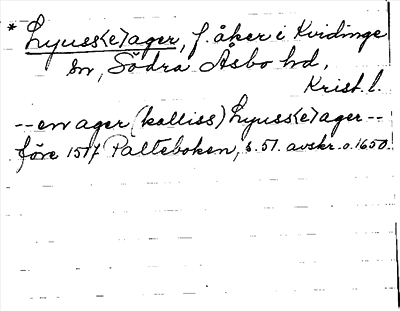 * Lyuss(e)ager, f. åker i Kvidinge
sn, Södra Åsbo hd,
Krist. l.
-- en ager (kalliss) Lyuss(e)ager --
före 1517 Palteboken, s. 51. avskr. o. 1650.